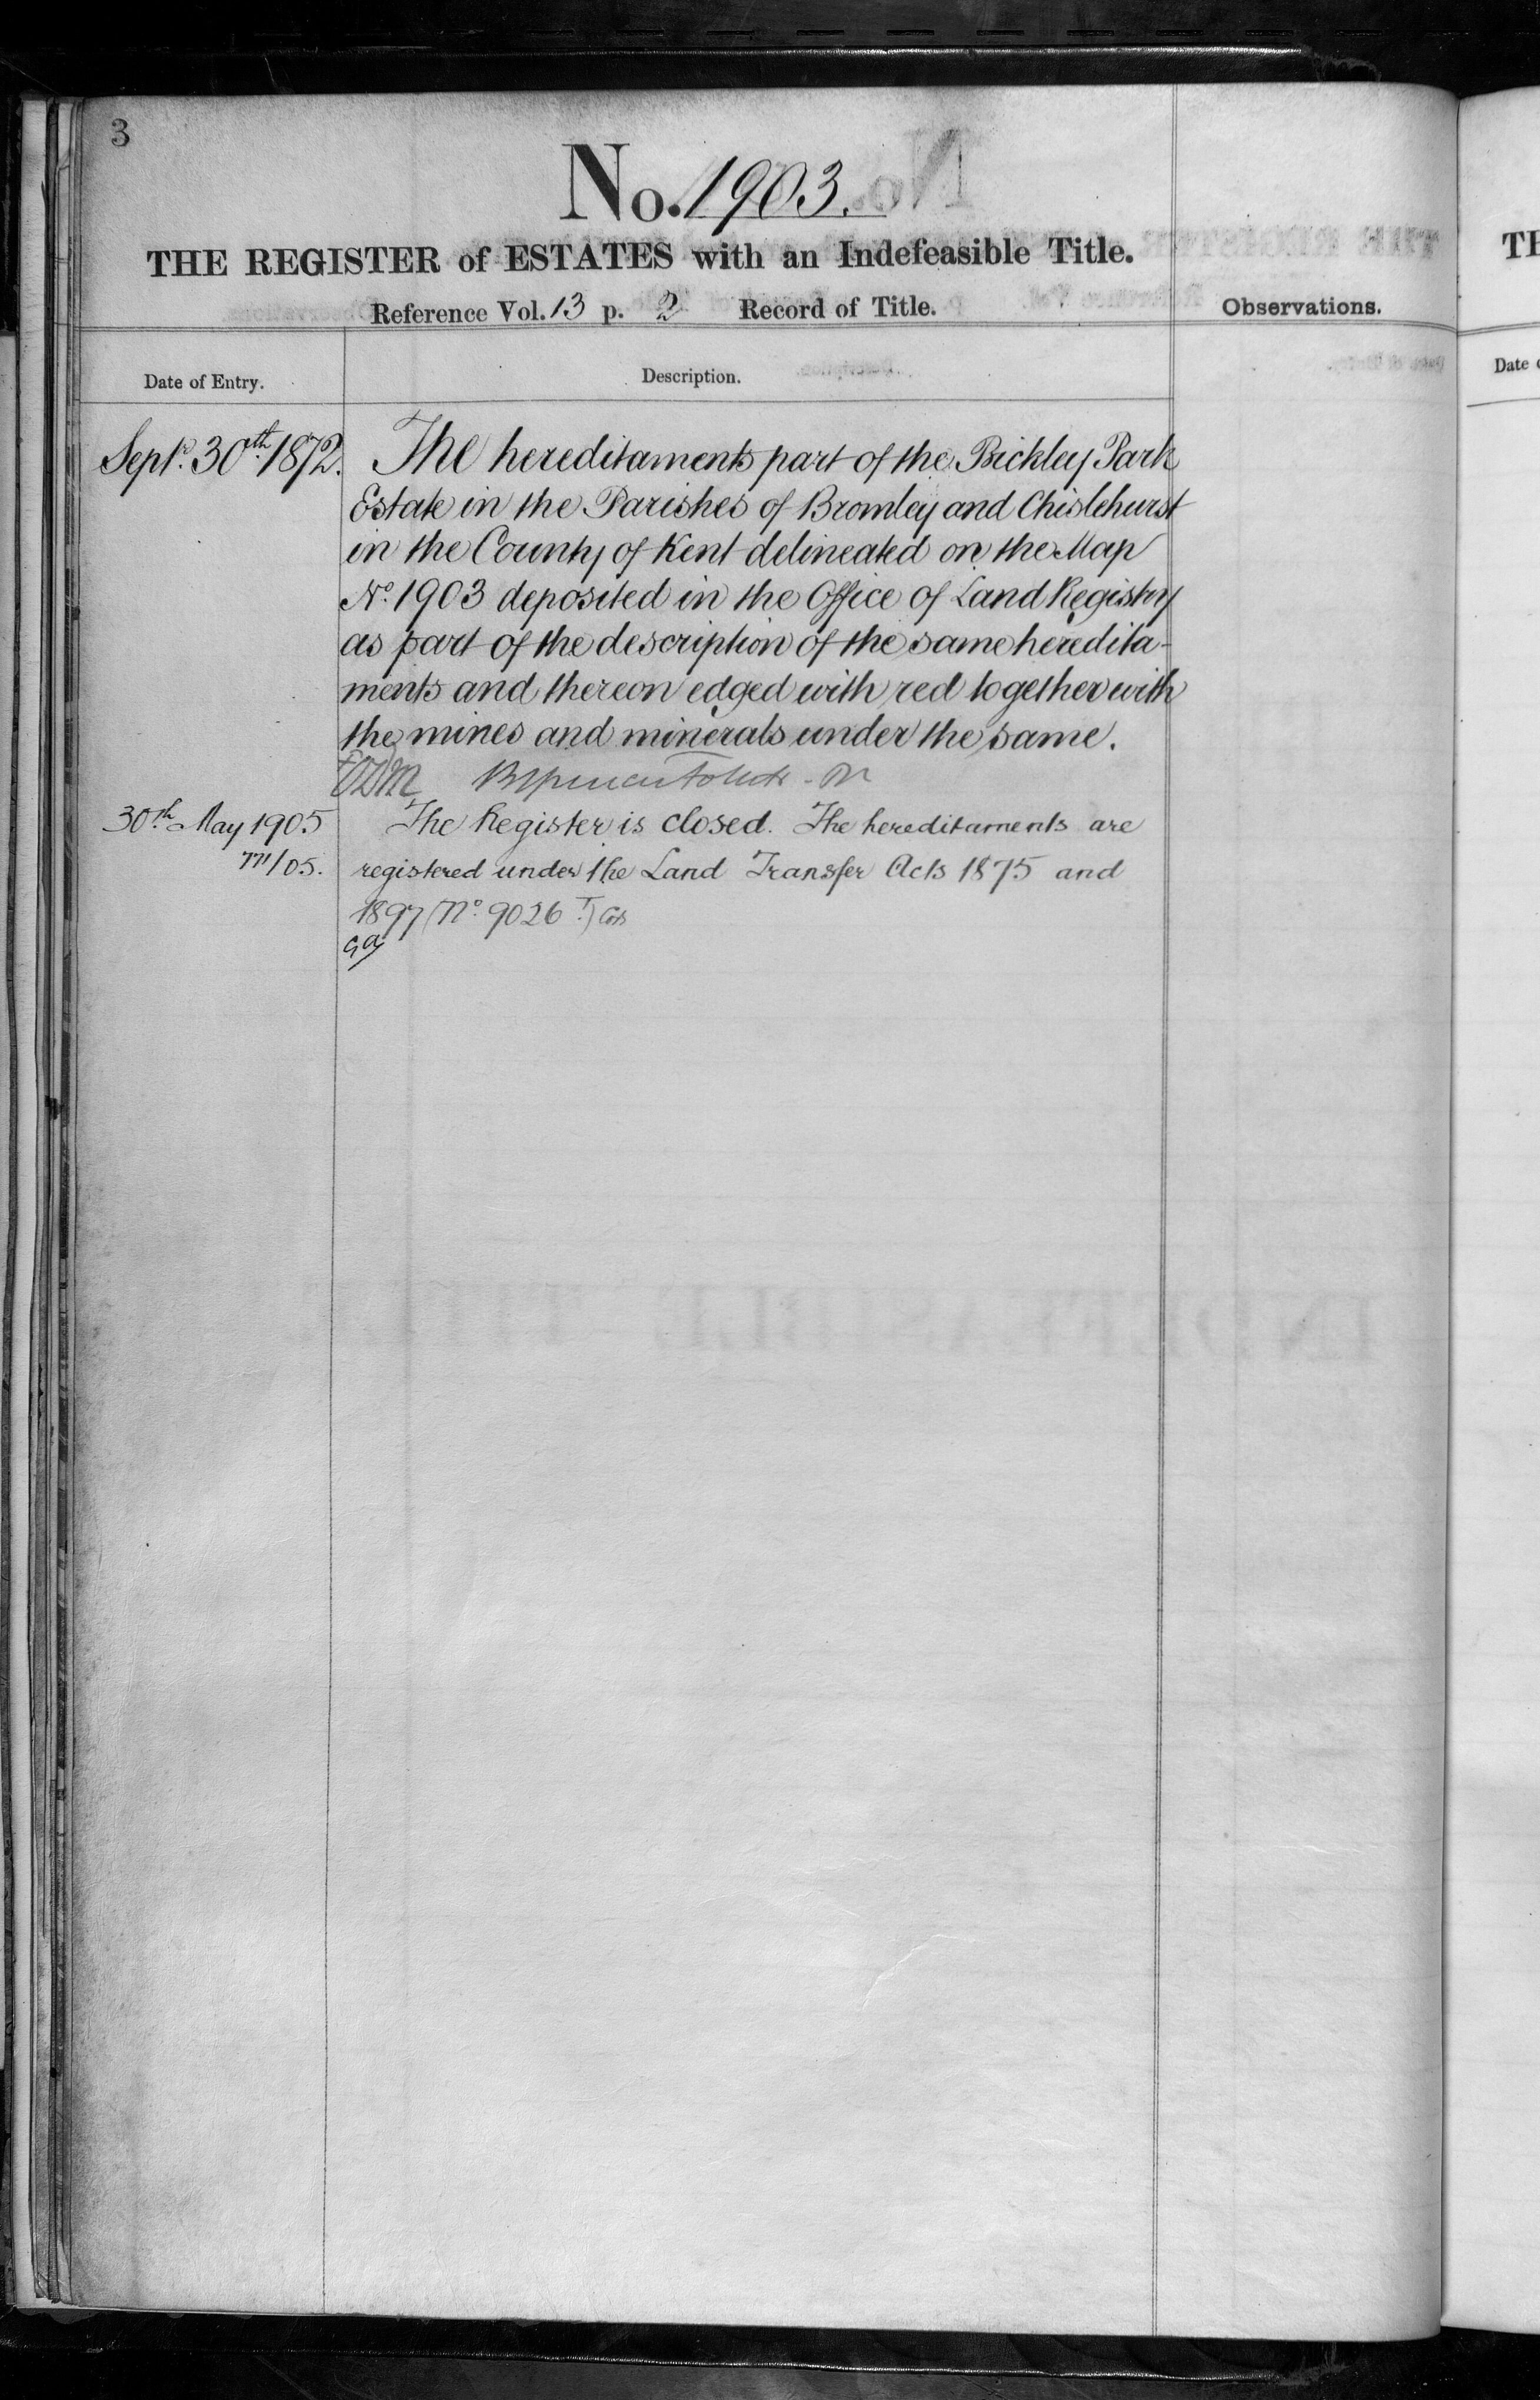 3
No. 1903.
THE REGISTER of ESTATES with an Indefeasible Title.
Reference Vol. 13 p. 2 Record of Title.
Observations.
Date of Entry.
Description.
Sept. 30th 1872.
The hereditaments part of the Bickley Park
Estate in the Parishes of Bromley and Chislehurst
in the County of Kent delineated on the Map
No. 1903 deposited in the Office of Land Registry
as part of the description of the same heredita-
ments and thereon edged with red together with
the mines and minerals under the same.
30th May 1905
/05.
The Register is closed. The hereditaments are
registered under the Land Transfer Acts 1875 and
1897 (No. 9026 T.)
TH
Date